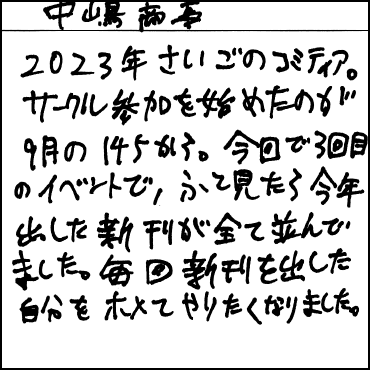 中嶋商店
2023年さいごのコミティア。
サークル参加を始めたのが
9月の145から。今回で3回目
のイベントで、ふと見たら今年
出した新刊が全て並んで
ました。毎回新刊を出した
自分をホメてやりたくなりました。